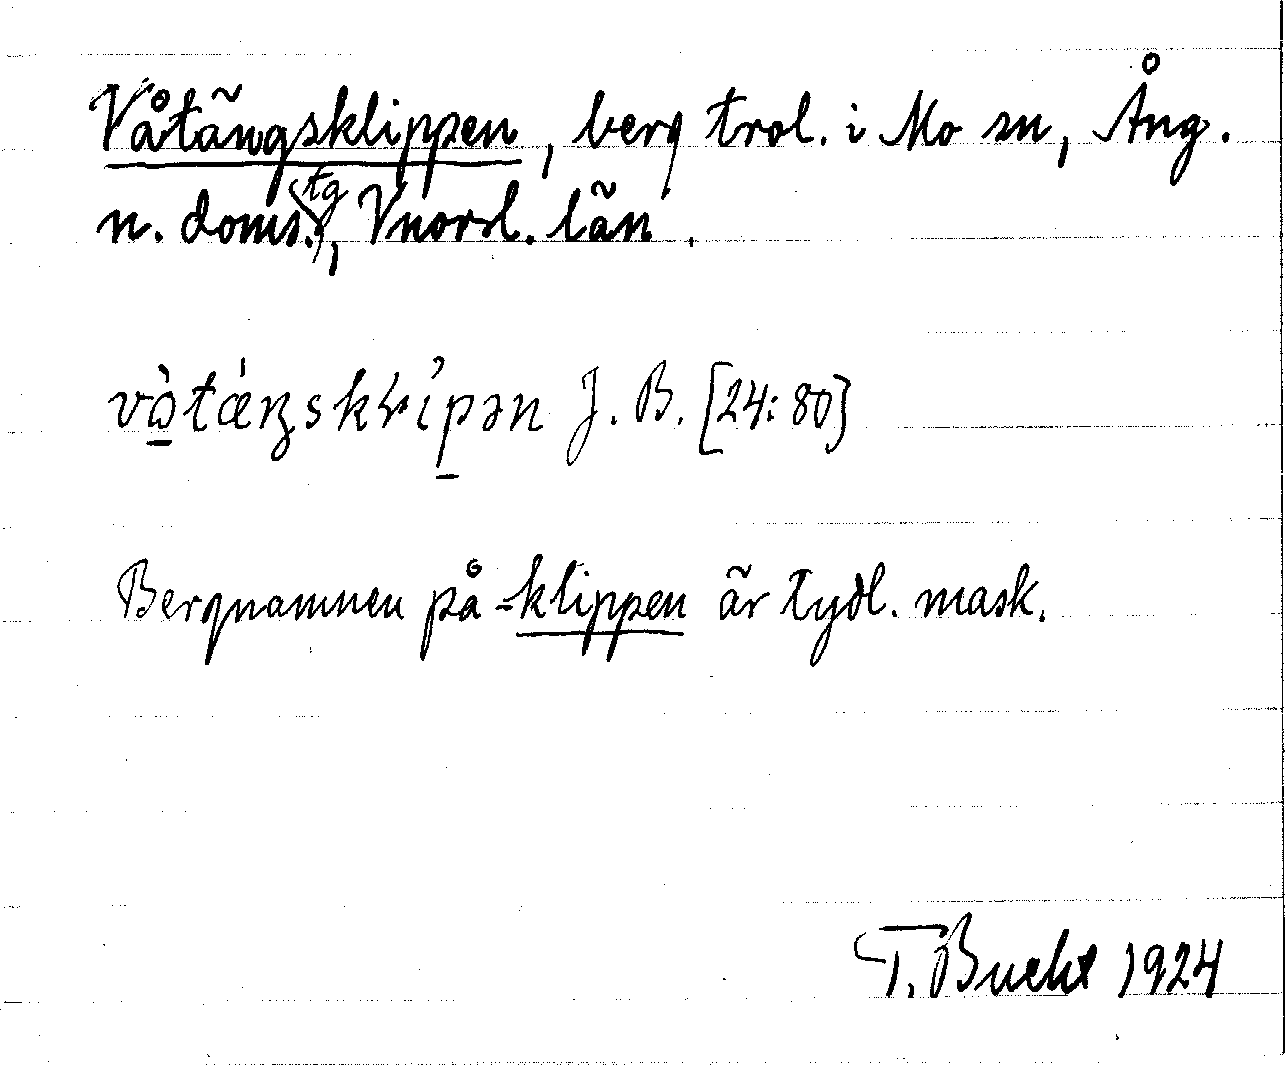 Våtängsklippen, berg trol. i Mo sn, Ång.
n. doms.tg, Vnorrl. län.
vɔ̀tǽŋskḷípən J. B. [24: 80]
Bergnamnen på -klippen är tydl. mask.
T. Bucht 1924